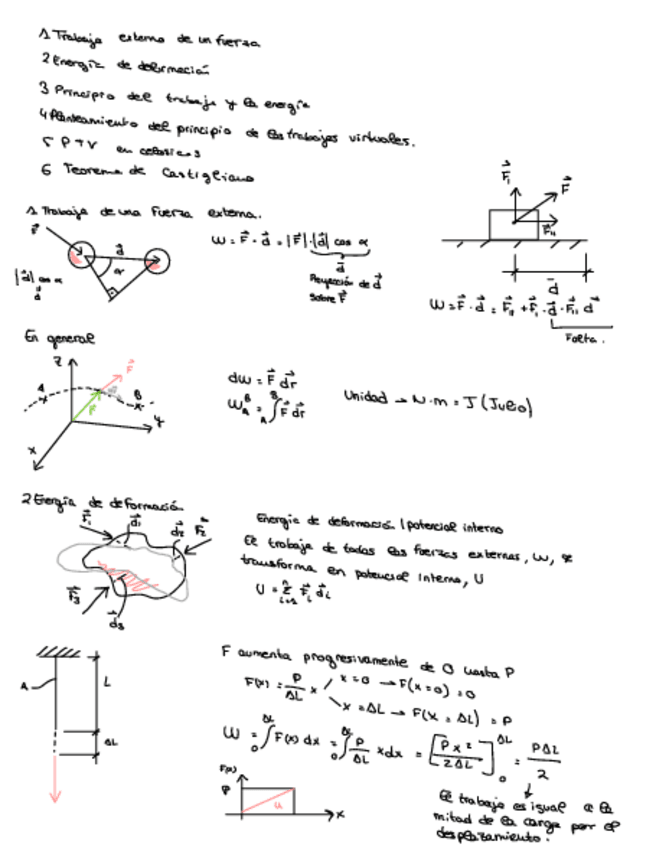 1 Trabajo externo de un fuerza
2 Energía de deformación
3 Principio del trabajo y la energía
4 Planteamiento del principio de los trabajos virtuales.
5 P T V en celosías
6 Teorema de Castigliano
1. Trabajo de una Fuerza externa.
W = F⃗ · d⃗ = |F⃗| · |d⃗| cos α
|d⃗| cos α
d
α
Proyección de d⃗
sobre F⃗
W = F⃗ · d⃗ = F⃗₁₁ + F⃗₁ · d⃗ · F⃗₁₁ d⃗
Falta.
En general
Z
A
B
F⃗
r⃗
y
x
dW = F⃗ dr⃗
W_A^B = ∫_A^B F⃗ dr⃗
Unidad → N·m = J (Julio)
2 Energía de deformación
F⃗₁ d⃗₁ d⃗₂ F⃗₂
F⃗₃
d⃗₃
Energia de deformación / potencial interno
El trabajo de todas las fuerzas externas, W, se
transforma en potencial interno, U
U = Σ_{i=1}^n F⃗ᵢ d⃗ᵢ
F aumenta progresivamente de 0 hasta P
F(x) = P/ΔL x
x = 0 → F(x = 0) = 0
x = ΔL → F(x = ΔL) = P
A
L
ΔL
W = ∫₀^ΔL F(x) dx = ∫₀^ΔL P/ΔL x dx = [P x²/2ΔL]₀^ΔL = PΔL/2
F(x)
P
U
x
El trabajo es igual a la
mitad de la carga por el
desplazamiento.